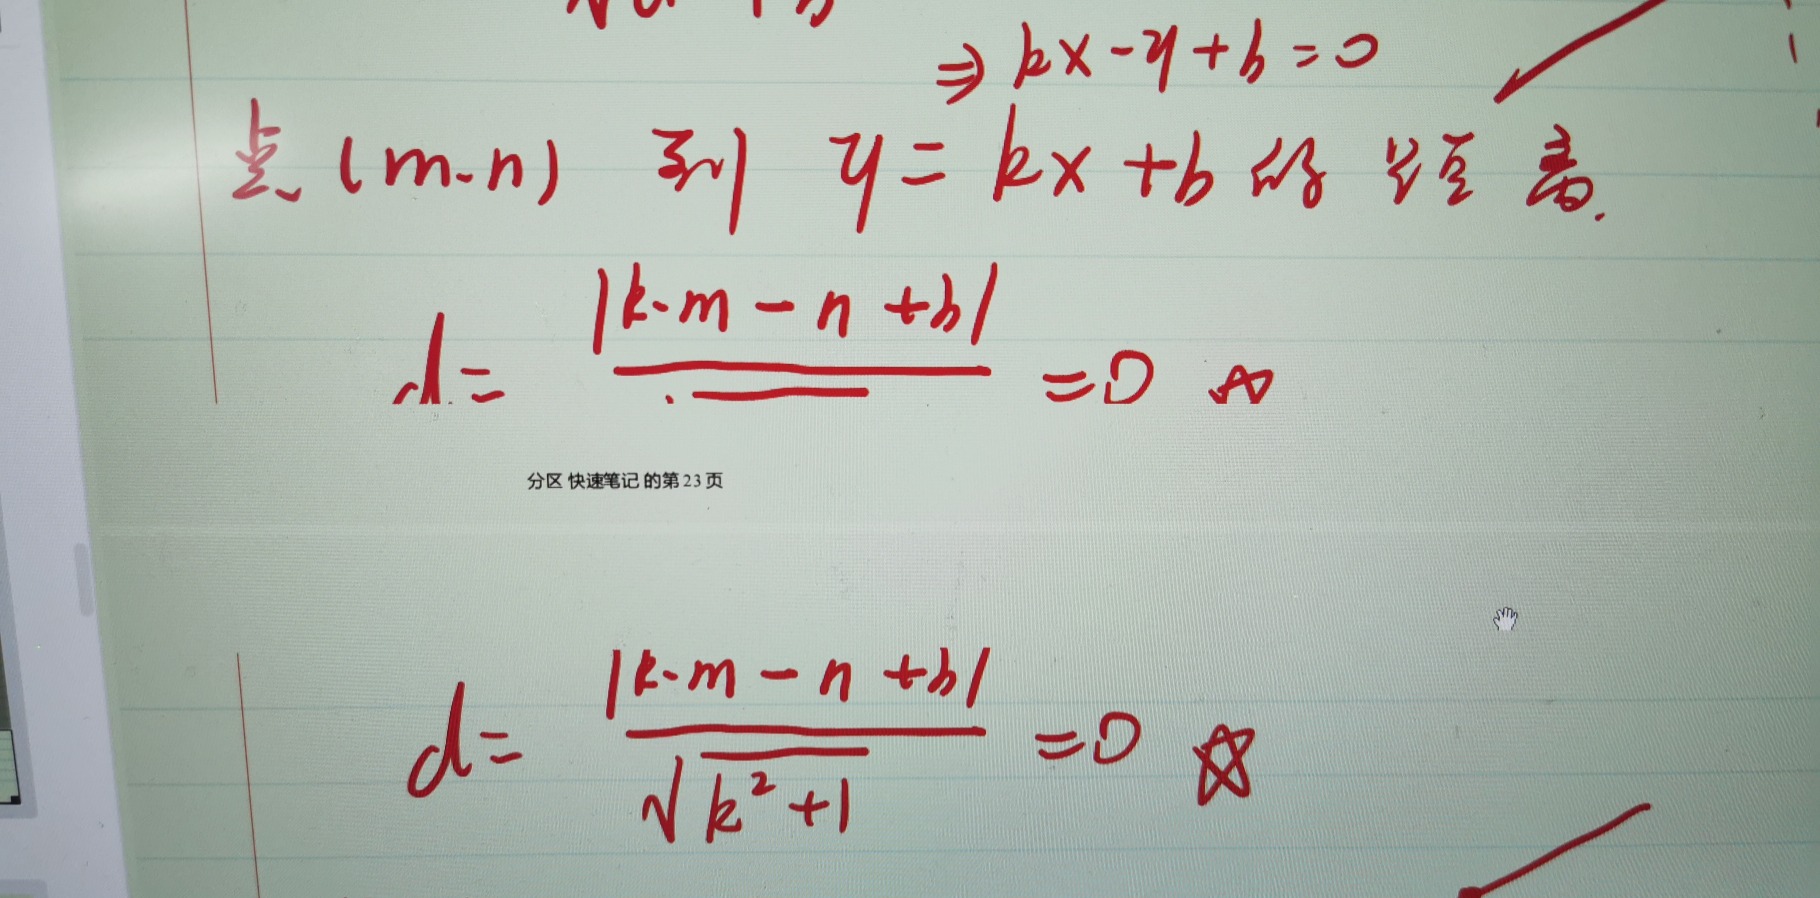 ⇒ kx-y+b=0
点(m,n) 到 y=kx+b的距离.
d= |k·m-n+b| =0 ☆
分区 快速笔记 的第23页
d= |k·m-n+b| / √(k²+1) =0 ☆